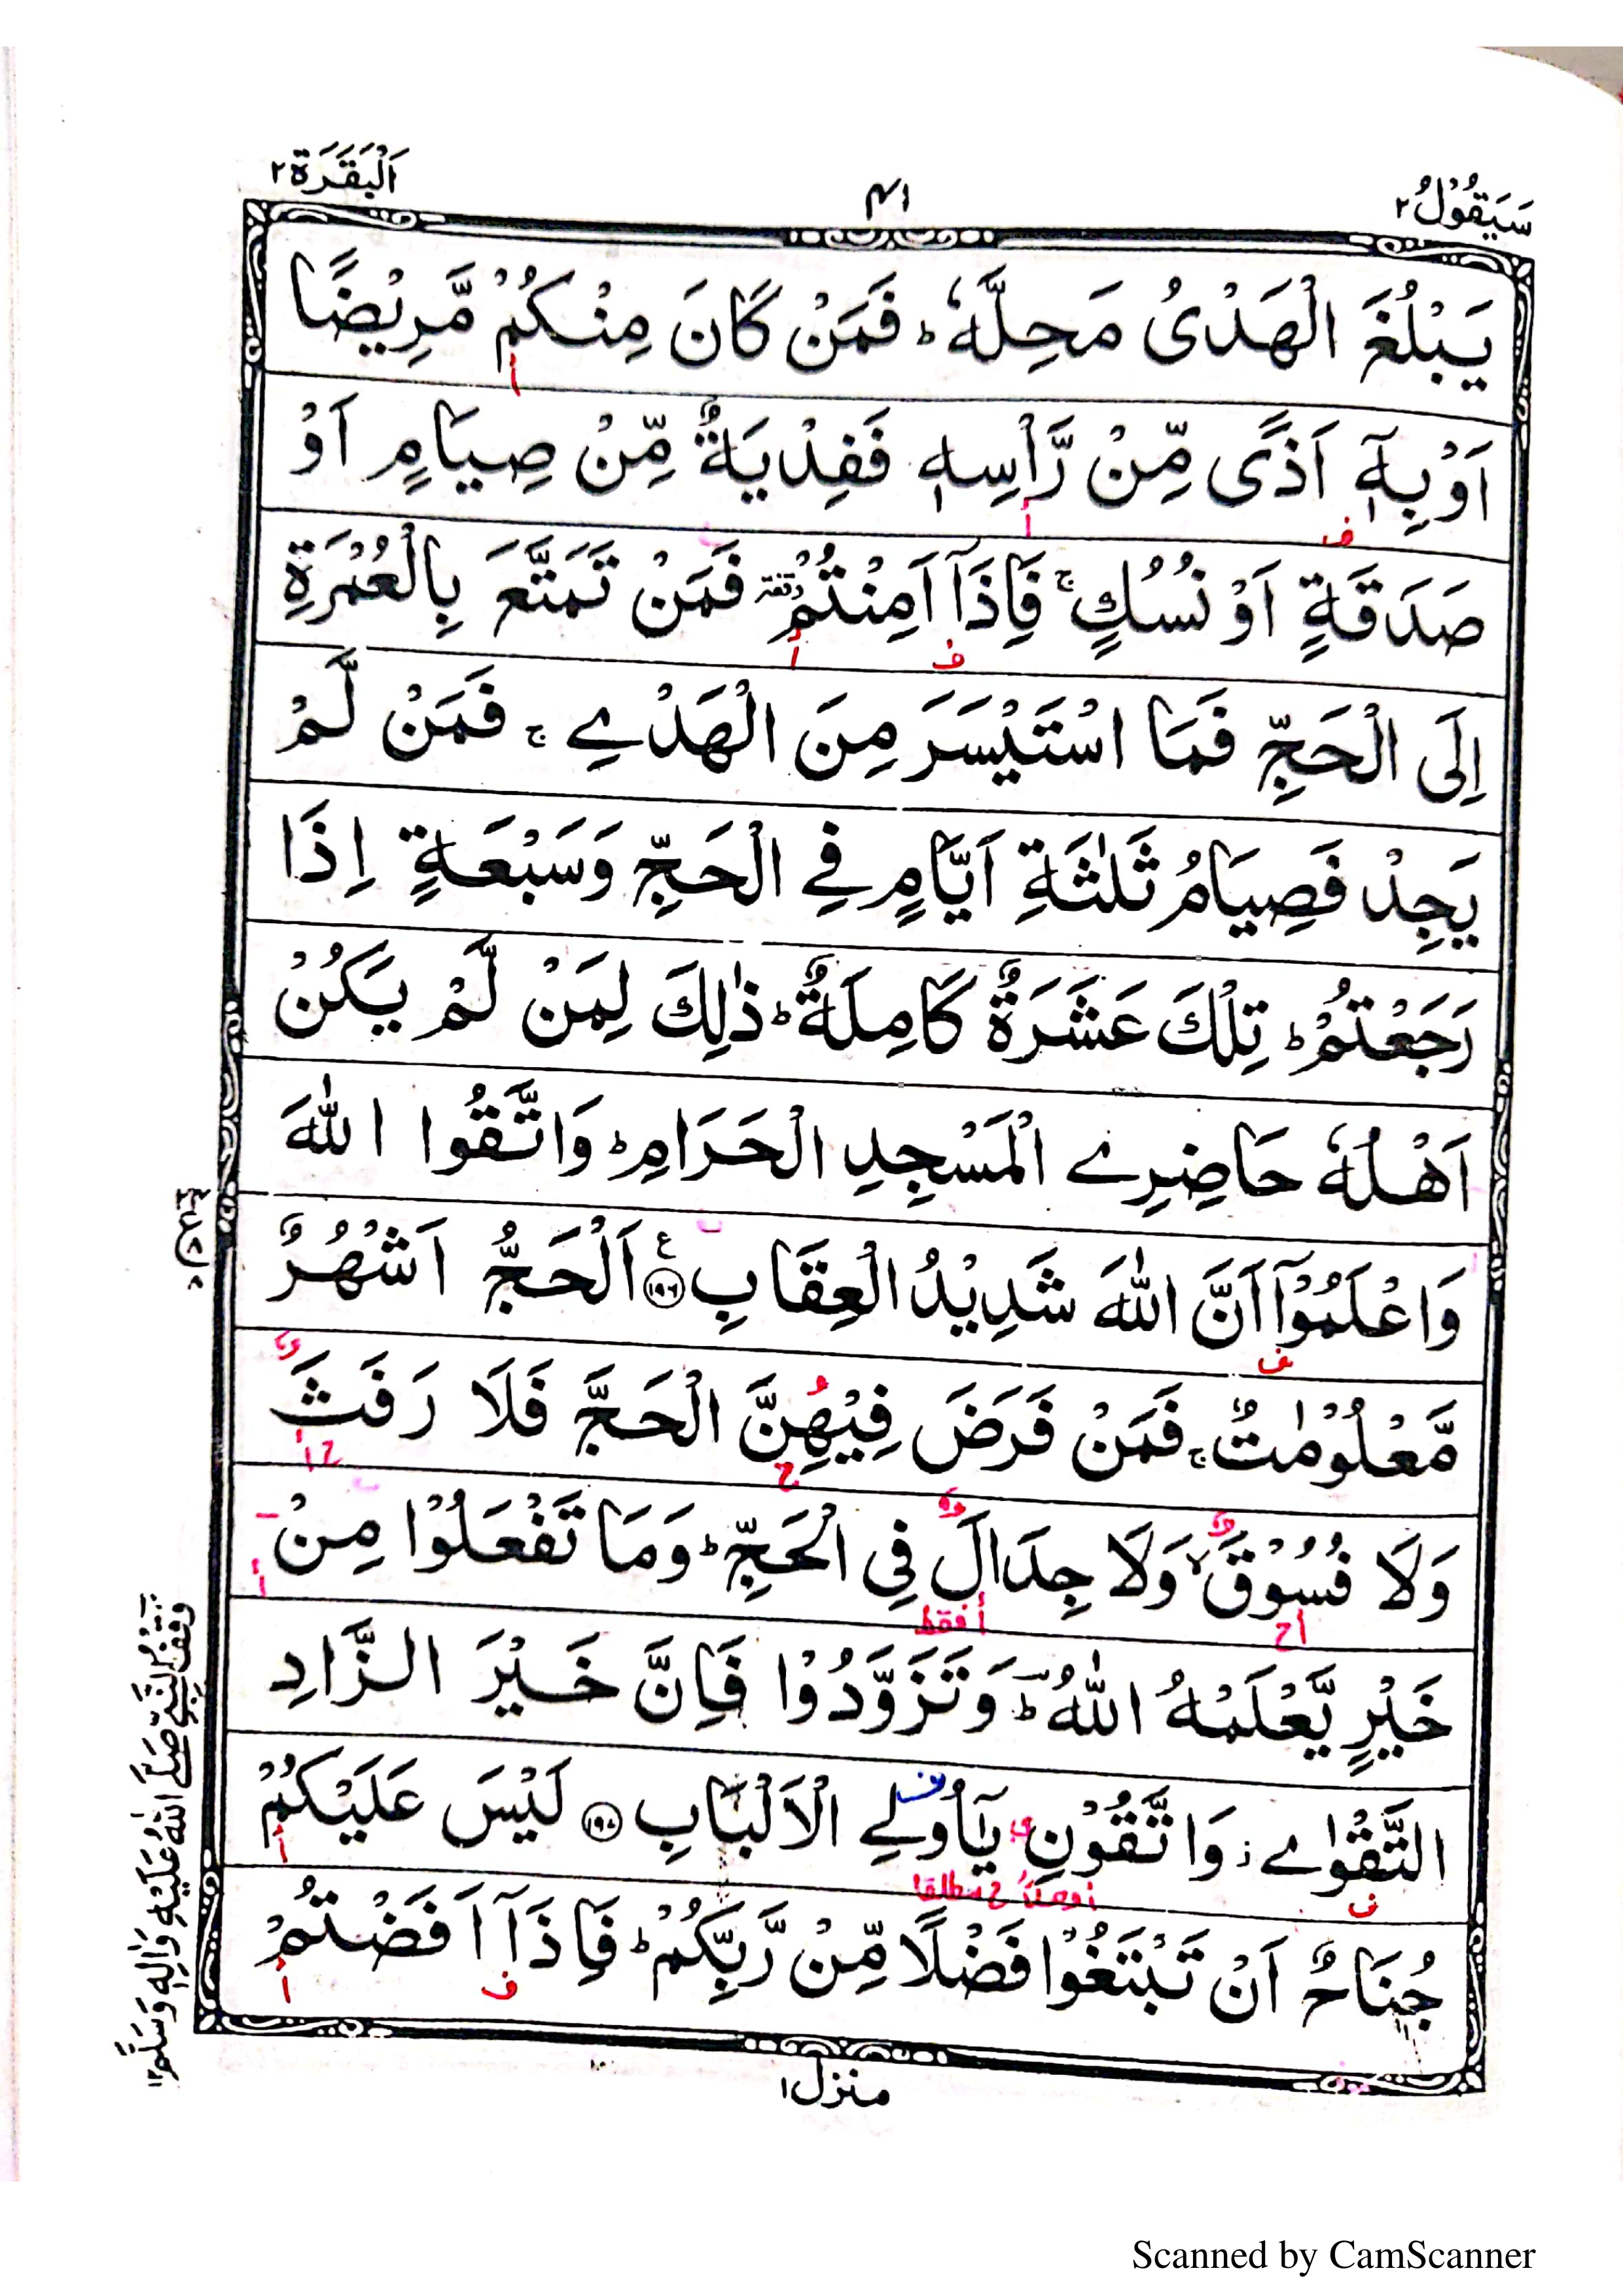 سَيَقُوْلُ ٢
٤١
اَلْبَقَرَة ٢
يَبْلُغَ الْهَدْىُ مَحِلَّهٗ ؕ فَمَنْ كَانَ مِنْكُمْ مَّرِيْضًا
اَوْ بِهٖٓ اَذًى مِّنْ رَّاْسِهٖ فَفِدْيَةٌ مِّنْ صِيَامٍ اَوْ
صَدَقَةٍ اَوْ نُسُكٍ ۚ فَاِذَآ اَمِنْتُمْ ۥ فَمَنْ تَمَتَّعَ بِالْعُمْرَةِ
اِلَى الْحَجِّ فَمَا اسْتَيْسَرَ مِنَ الْهَدْىِ ۚ فَمَنْ لَّمْ
يَجِدْ فَصِيَامُ ثَلٰثَةِ اَيَّامٍ فِى الْحَجِّ وَسَبْعَةٍ اِذَا
رَجَعْتُمْ ؕ تِلْكَ عَشَرَةٌ كَامِلَةٌ ؕ ذٰلِكَ لِمَنْ لَّمْ يَكُنْ
اَهْلُهٗ حَاضِرِى الْمَسْجِدِ الْحَرَامِ ؕ وَاتَّقُوا اللّٰهَ
وَاعْلَمُوْٓا اَنَّ اللّٰهَ شَدِيْدُ الْعِقَابِ ١٩٦ ع اَلْحَجُّ اَشْهُرٌ
مَّعْلُوْمٰتٌ ۚ فَمَنْ فَرَضَ فِيْهِنَّ الْحَجَّ فَلَا رَفَثَ
وَلَا فُسُوْقَ ۙ وَلَا جِدَالَ فِى الْحَجِّ ؕ وَمَا تَفْعَلُوْا مِنْ
أح
أ فقط
خَيْرٍ يَّعْلَمْهُ اللّٰهُ ؕ وَتَزَوَّدُوْا فَاِنَّ خَيْرَ الزَّادِ
التَّقْوٰى ۫ وَاتَّقُوْنِ يٰٓاُولِى الْاَلْبَابِ ١٩٧ لَيْسَ عَلَيْكُمْ
جُنَاحٌ اَنْ تَبْتَغُوْا فَضْلًا مِّنْ رَّبِّكُمْ ؕ فَاِذَآ اَفَضْتُمْ
وقف النبي صلى الله عليه واله وسلم ١٢
منزل ١
Scanned by CamScanner